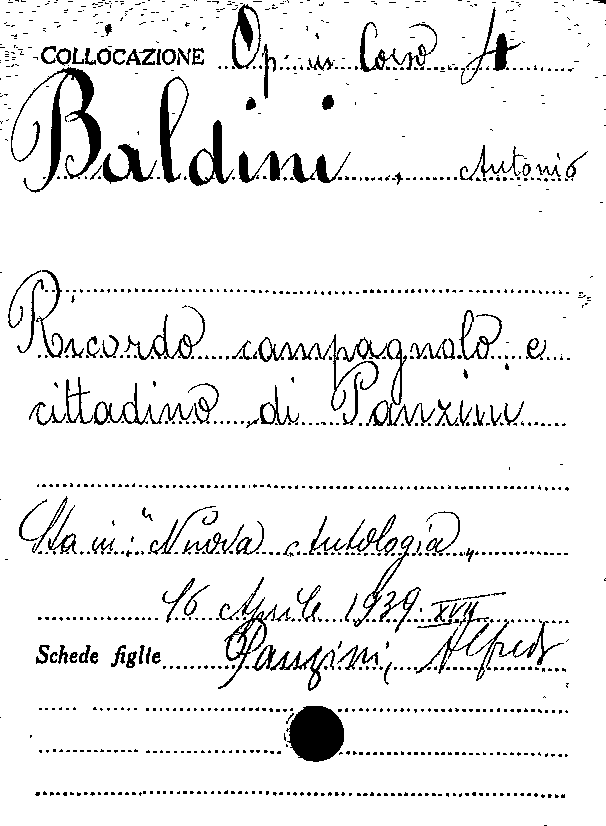 COLLOCAZIONE Op. in Corso 4
Baldini, Antonio
Ricordo campagnolo e
cittadino di Panzini
Sta in: "Nuova Antologia"
16 Aprile 1939. XVII
Schede figlie Panzini, Alfredo